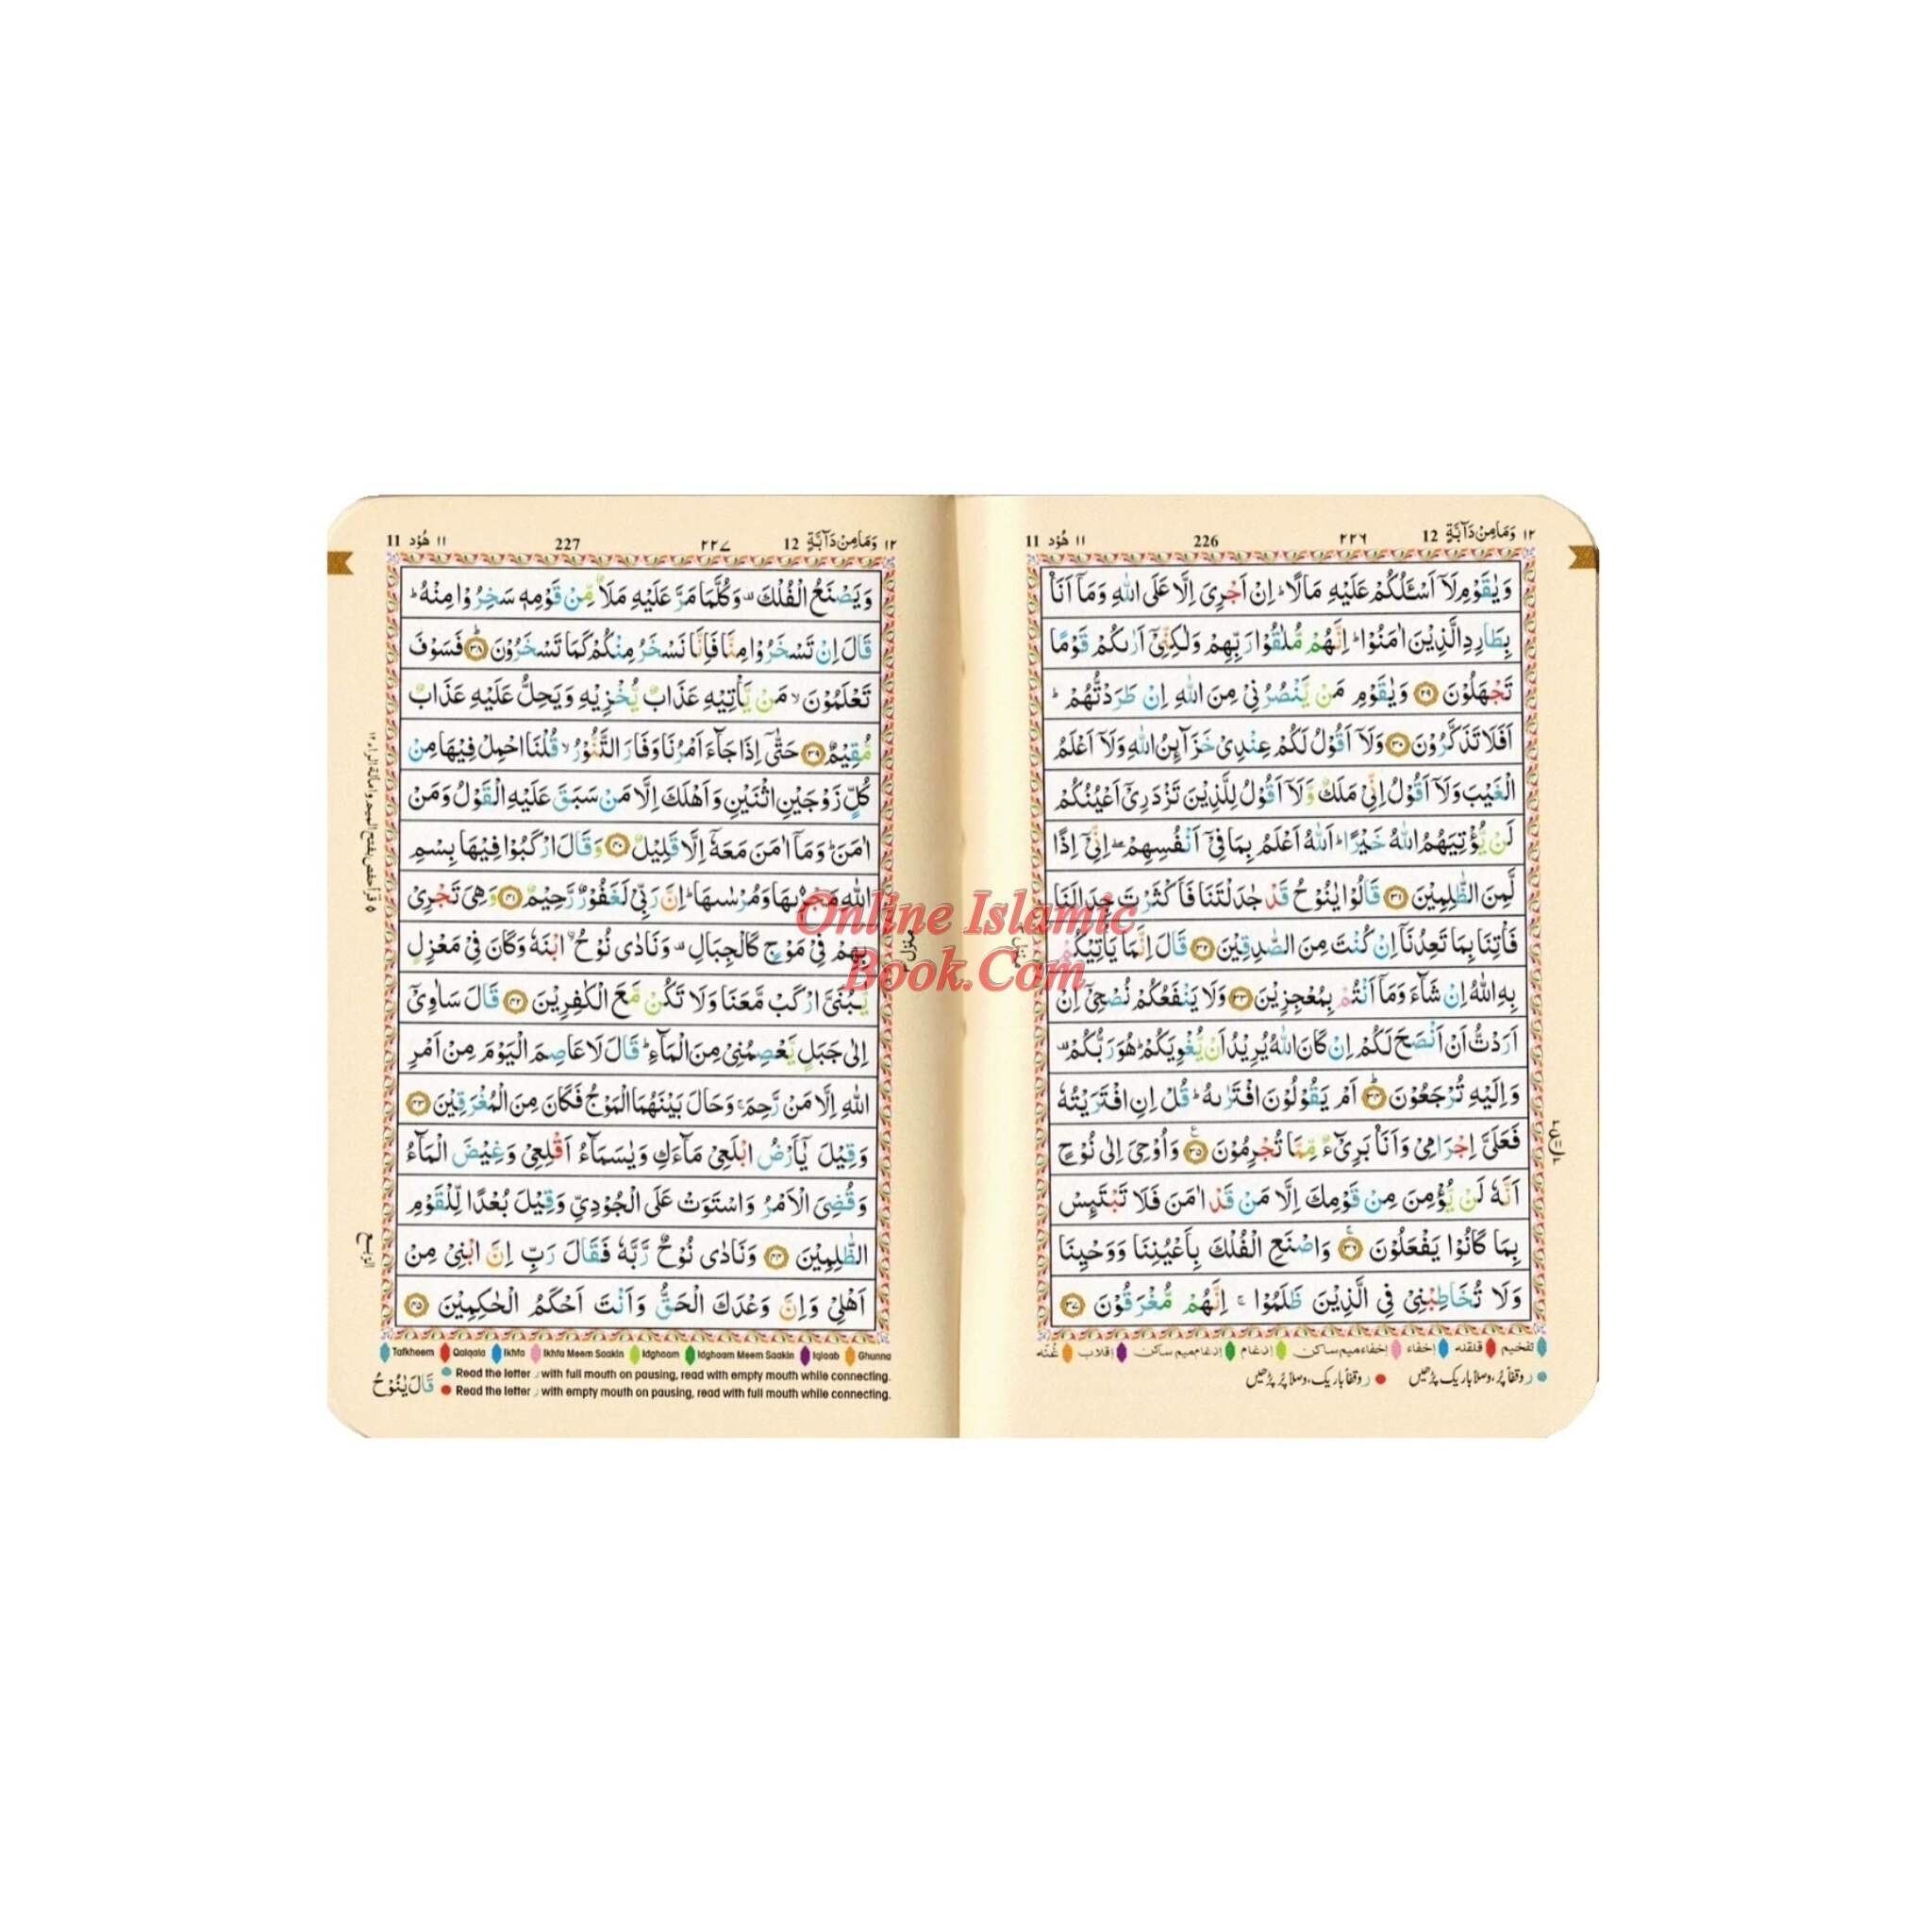 ١٢ وَمَا مِنْ دَآبَّةٍ 12 ٢٢٦ 226 ١١ هُوْد 11
وَيٰقَوْمِ لَآ اَسْـَٔلُكُمْ عَلَيْهِ مَالًا ؕ اِنْ اَجْرِىَ اِلَّا عَلَى اللّٰهِ وَمَآ اَنَا۠
بِطَارِدِ الَّذِيْنَ اٰمَنُوْا ؕ اِنَّهُمْ مُّلٰقُوْا رَبِّهِمْ وَلٰكِنِّىْٓ اَرٰىكُمْ قَوْمًا
تَجْهَلُوْنَ ۝٢٩ وَيٰقَوْمِ مَنْ يَّنْصُرُنِىْ مِنَ اللّٰهِ اِنْ طَرَدْتُّهُمْ ؕ
اَفَلَا تَذَكَّرُوْنَ ۝٣٠ وَلَآ اَقُوْلُ لَكُمْ عِنْدِىْ خَزَآئِنُ اللّٰهِ وَلَآ اَعْلَمُ
الْغَيْبَ وَلَآ اَقُوْلُ اِنِّىْ مَلَكٌ وَّلَآ اَقُوْلُ لِلَّذِيْنَ تَزْدَرِىْٓ اَعْيُنُكُمْ
لَنْ يُّؤْتِيَهُمُ اللّٰهُ خَيْرًا ؕ اَللّٰهُ اَعْلَمُ بِمَا فِىْٓ اَنْفُسِهِمْ ۖ اِنِّىْٓ اِذًا
لَّمِنَ الظّٰلِمِيْنَ ۝٣١ قَالُوْا يٰنُوْحُ قَدْ جٰدَلْتَنَا فَاَكْثَرْتَ جِدَالَنَا
فَاْتِنَا بِمَا تَعِدُنَآ اِنْ كُنْتَ مِنَ الصّٰدِقِيْنَ ۝٣٢ قَالَ اِنَّمَا يَاْتِيْكُمْ
بِهِ اللّٰهُ اِنْ شَآءَ وَمَآ اَنْتُمْ بِمُعْجِزِيْنَ ۝٣٣ وَلَا يَنْفَعُكُمْ نُصْحِىْٓ اِنْ
اَرَدْتُّ اَنْ اَنْصَحَ لَكُمْ اِنْ كَانَ اللّٰهُ يُرِيْدُ اَنْ يُّغْوِيَكُمْ ؕ هُوَ رَبُّكُمْ
وَاِلَيْهِ تُرْجَعُوْنَ ۝٣٤ اَمْ يَقُوْلُوْنَ افْتَرٰىهُ ؕ قُلْ اِنِ افْتَرَيْتُهٗ
فَعَلَىَّ اِجْرَامِىْ وَاَنَا۠ بَرِىْٓءٌ مِّمَّا تُجْرِمُوْنَ ۝٣٥ وَاُوْحِىَ اِلٰى نُوْحٍ
اَنَّهٗ لَنْ يُّؤْمِنَ مِنْ قَوْمِكَ اِلَّا مَنْ قَدْ اٰمَنَ فَلَا تَبْتَئِسْ
بِمَا كَانُوْا يَفْعَلُوْنَ ۝٣٦ وَاصْنَعِ الْفُلْكَ بِاَعْيُنِنَا وَوَحْيِنَا
وَلَا تُخَاطِبْنِىْ فِى الَّذِيْنَ ظَلَمُوْا ۚ اِنَّهُمْ مُّغْرَقُوْنَ ۝٣٧
تفخیم قلقلہ إخفاء إخفاء میم ساکن إدغام إدغام میم ساکن إقلاب غُنّہ
ر وقفاً پُر، وصلاً باریک پڑھیں ر وقفاً باریک، وصلاً پُر پڑھیں
١٢ وَمَا مِنْ دَآبَّةٍ 12 ٢٢٧ 227 ١١ هُوْد 11
وَيَصْنَعُ الْفُلْكَ ۣ وَكُلَّمَا مَرَّ عَلَيْهِ مَلَاٌ مِّنْ قَوْمِهٖ سَخِرُوْا مِنْهُ ؕ
قَالَ اِنْ تَسْخَرُوْا مِنَّا فَاِنَّا نَسْخَرُ مِنْكُمْ كَمَا تَسْخَرُوْنَ ۝٣٨ فَسَوْفَ
تَعْلَمُوْنَ ۙ مَنْ يَّاْتِيْهِ عَذَابٌ يُّخْزِيْهِ وَيَحِلُّ عَلَيْهِ عَذَابٌ
مُّقِيْمٌ ۝٣٩ حَتّٰٓى اِذَا جَآءَ اَمْرُنَا وَفَارَ التَّنُّوْرُ ۙ قُلْنَا احْمِلْ فِيْهَا مِنْ
كُلٍّ زَوْجَيْنِ اثْنَيْنِ وَاَهْلَكَ اِلَّا مَنْ سَبَقَ عَلَيْهِ الْقَوْلُ وَمَنْ
اٰمَنَ ؕ وَمَآ اٰمَنَ مَعَهٗٓ اِلَّا قَلِيْلٌ ۝٤٠ وَقَالَ ارْكَبُوْا فِيْهَا بِسْمِ
اللّٰهِ مَجْرٖىهَا وَمُرْسٰىهَا ؕ اِنَّ رَبِّىْ لَغَفُوْرٌ رَّحِيْمٌ ۝٤١ وَهِىَ تَجْرِىْ
بِهِمْ فِىْ مَوْجٍ كَالْجِبَالِ ۣ وَنَادٰى نُوْحُ ۨابْنَهٗ وَكَانَ فِىْ مَعْزِلٍ
يّٰبُنَىَّ ارْكَبْ مَّعَنَا وَلَا تَكُنْ مَّعَ الْكٰفِرِيْنَ ۝٤٢ قَالَ سَاٰوِىْٓ
اِلٰى جَبَلٍ يَّعْصِمُنِىْ مِنَ الْمَآءِ ؕ قَالَ لَا عَاصِمَ الْيَوْمَ مِنْ اَمْرِ
اللّٰهِ اِلَّا مَنْ رَّحِمَ ۚ وَحَالَ بَيْنَهُمَا الْمَوْجُ فَكَانَ مِنَ الْمُغْرَقِيْنَ ۝٤٣
وَقِيْلَ يٰٓاَرْضُ ابْلَعِىْ مَآءَكِ وَيٰسَمَآءُ اَقْلِعِىْ وَغِيْضَ الْمَآءُ
وَقُضِىَ الْاَمْرُ وَاسْتَوَتْ عَلَى الْجُوْدِىِّ وَقِيْلَ بُعْدًا لِّلْقَوْمِ
الظّٰلِمِيْنَ ۝٤٤ وَنَادٰى نُوْحٌ رَّبَّهٗ فَقَالَ رَبِّ اِنَّ ابْنِىْ مِنْ
اَهْلِىْ وَاِنَّ وَعْدَكَ الْحَقُّ وَاَنْتَ اَحْكَمُ الْحٰكِمِيْنَ ۝٤٥
Tafkheem Qalqala Ikhfa Ikhfa Meem Saakin Idghaam Idghaam Meem Saakin Iqlaab Ghunna
Read the letter ر with full mouth on pausing, read with empty mouth while connecting.
Read the letter ر with empty mouth on pausing, read with full mouth while connecting.
قَالَ يٰنُوْحُ
الربع
منزل ٣
Online Islamic
Book.Com